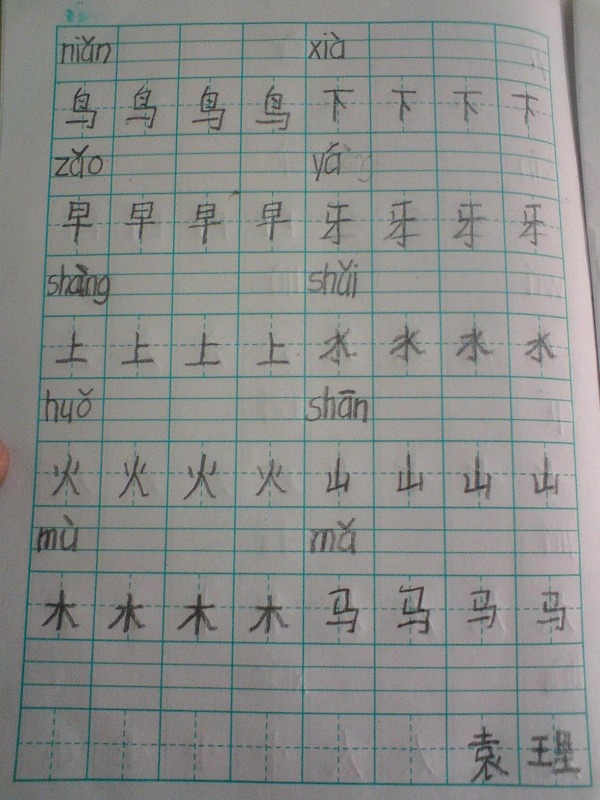 niǎn xià
鸟 鸟 鸟 鸟 下 下 下 下
zǎo yá
早 早 早 早 牙 牙 牙 牙
shàng shuǐ
上 上 上 上 水 水 水 水
huǒ shān
火 火 火 火 山 山 山 山
mù mǎ
木 木 木 木 马 马 马 马
袁